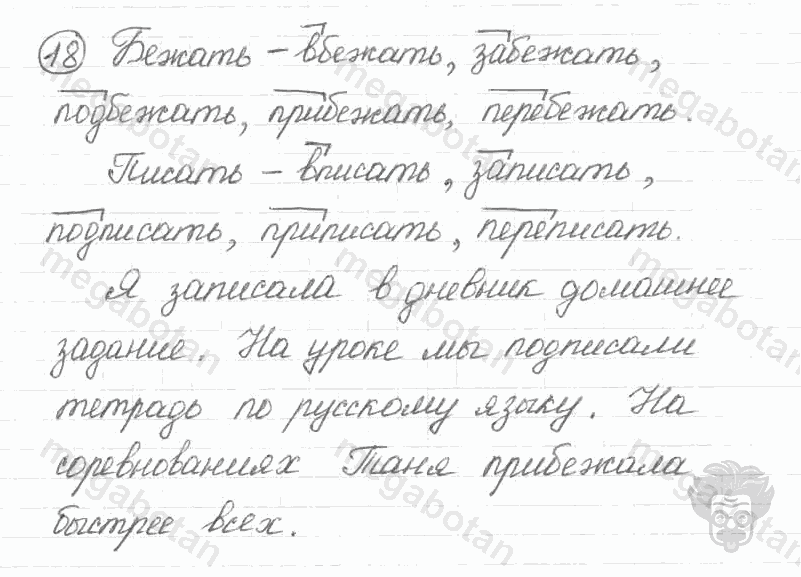 18 Бежать – вбежать, забежать,
подбежать, прибежать, перебежать.
Писать – вписать, записать,
подписать, приписать, переписать.
Я записала в дневник домашнее
задание. На уроке мы подписали
тетрадь по русскому языку. На
соревнованиях Таня прибежала
быстрее всех.
megabotan